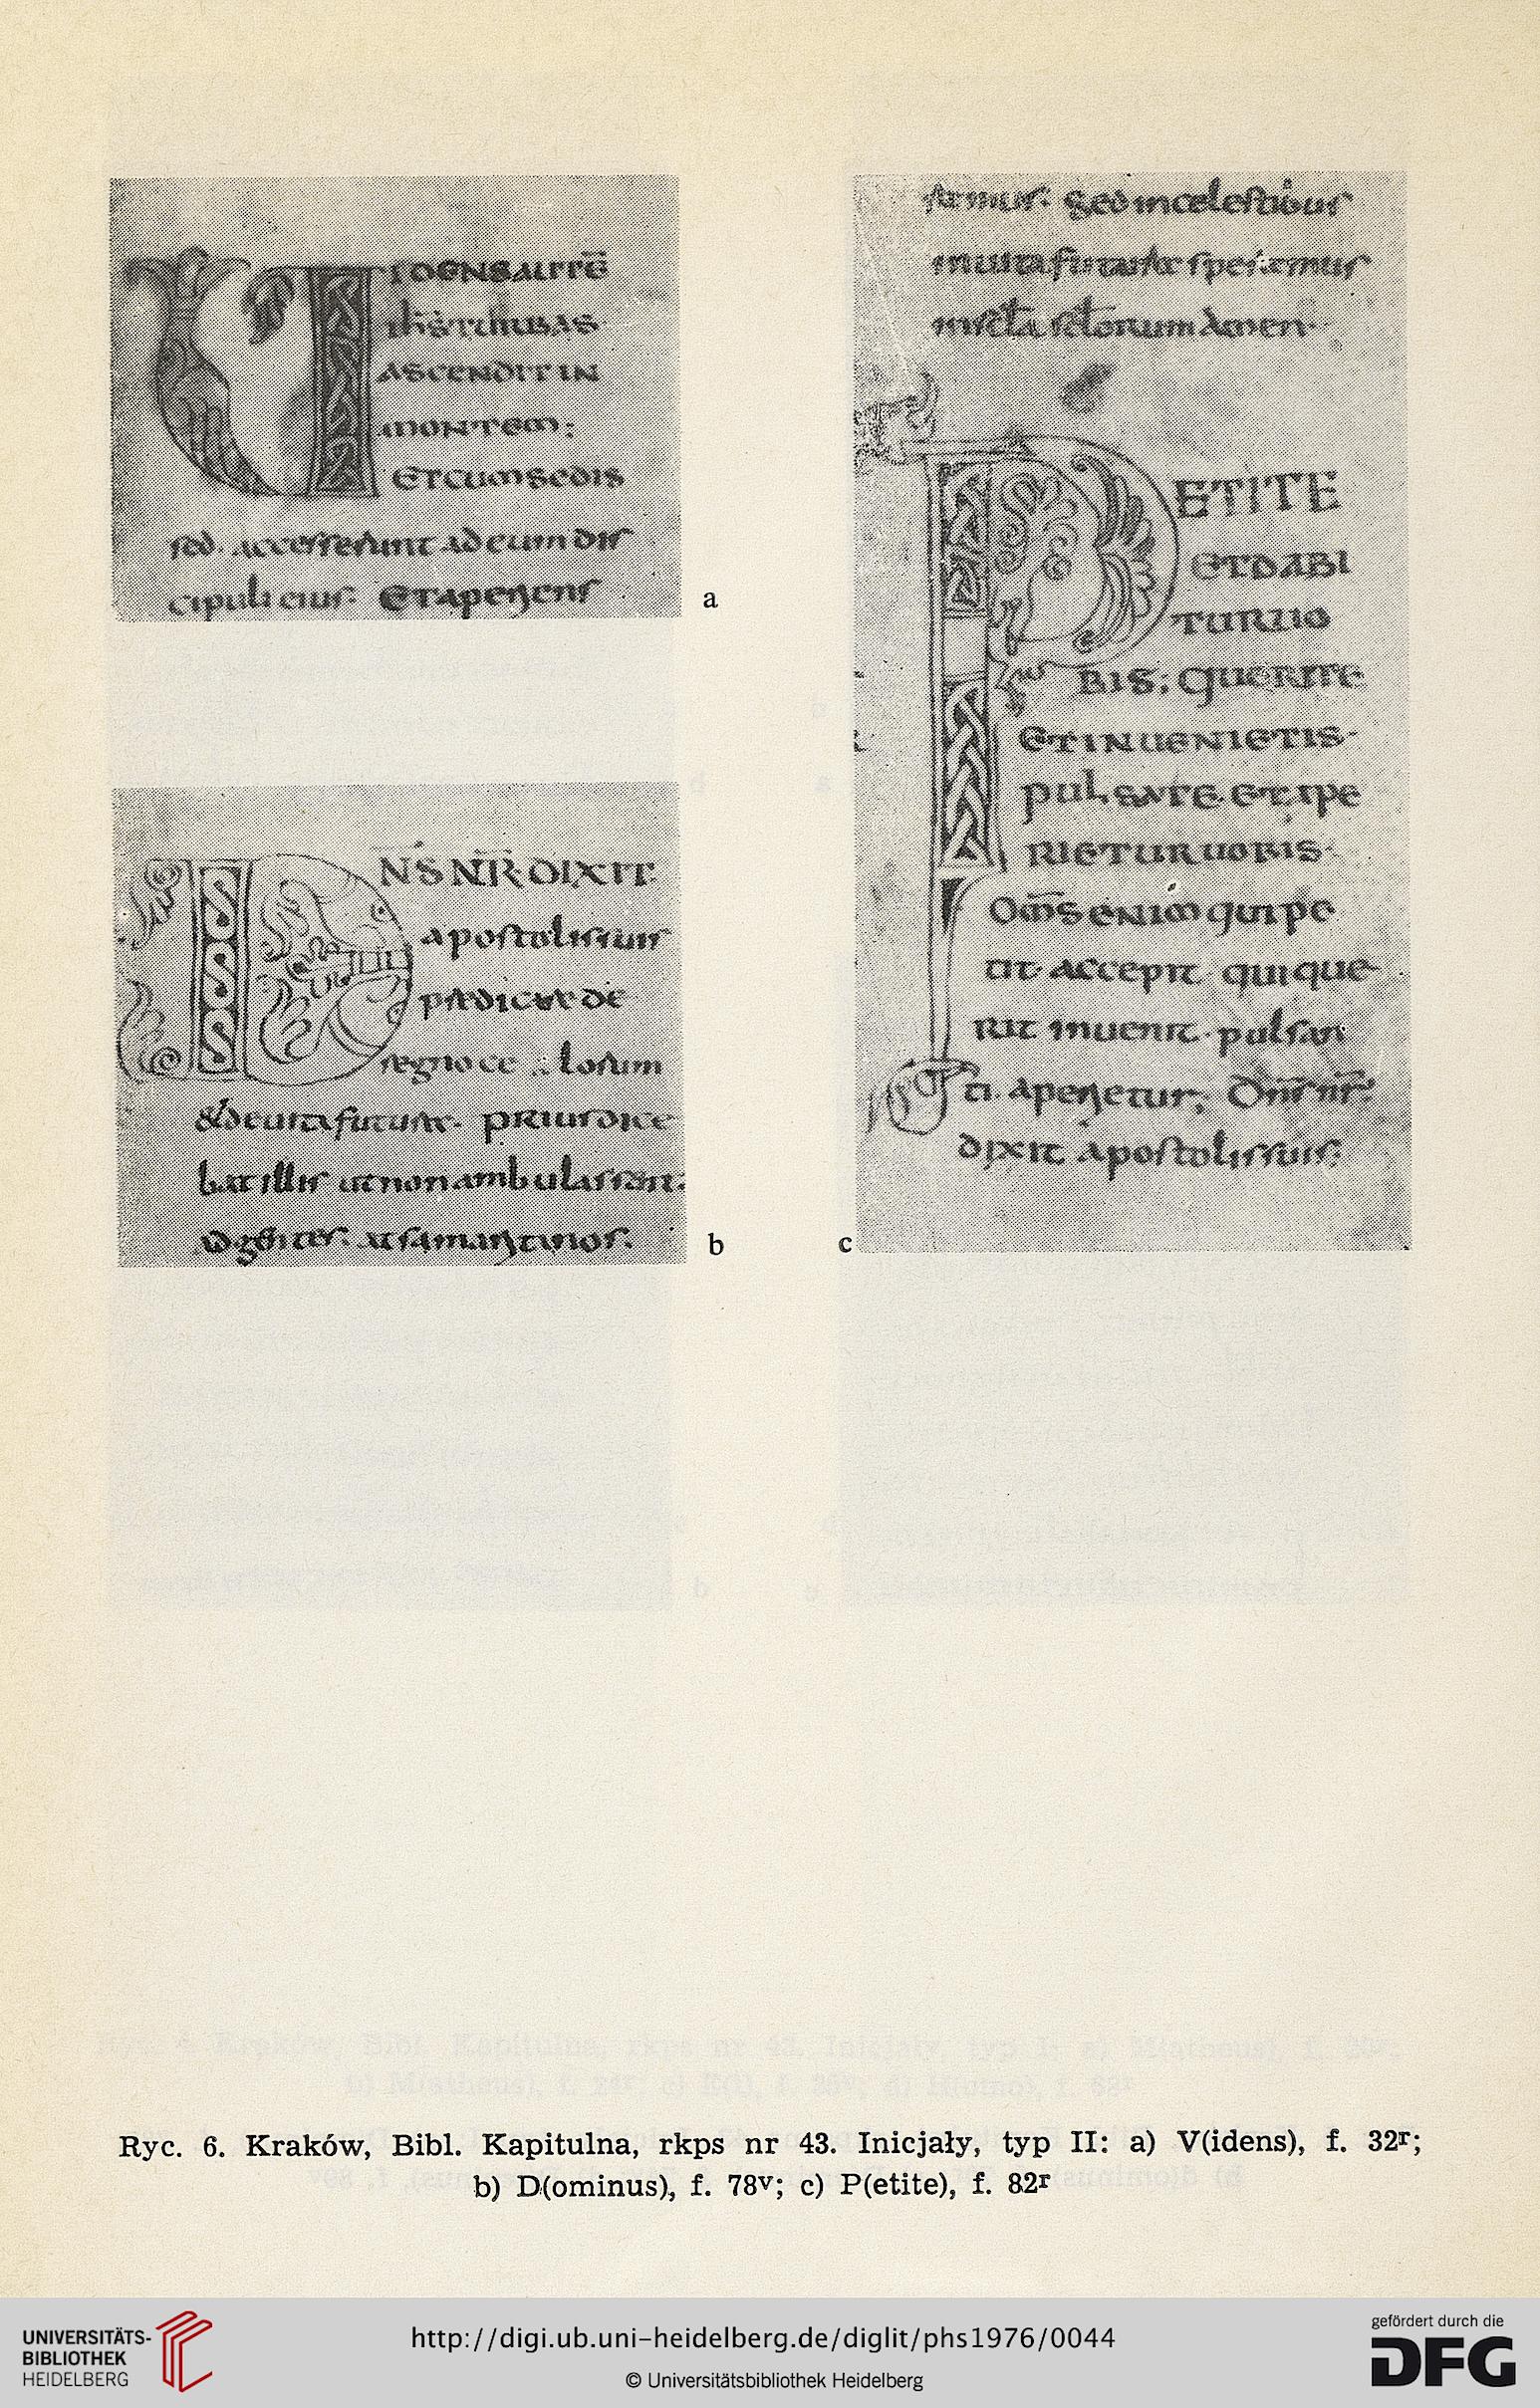 IDENS AUTTĒ
IH̄S TURBAS
ASCENDIT IN
MONTEM;
ET CUM SEDIS
sed. accesserunt ad eum dis
cipuli eius. Et aperiens
a
N̄S N̄R DIXIT
apostolis suis
predicate de
regno ce lorum
& de uita futura. prius dice
bat illis ut non ambulassent.
Ad gentes. at samaritanos.
b
Sed in celestibus
multa futura speramus
in scl̄a scl̄orum Amen
PETITE
ET DABI
TUR UO
BIS; QUERITE
ET INUENIETIS.
PULSATE. ET APE
RIETUR UOBIS.
Om̄s enim qui pe
tit. accepit. qui que
rit inuenit. pulsan
ti. aperietur; Dn̄s nr̄.
dixit apostolis suis.
c
Ryc. 6. Kraków, Bibl. Kapitulna, rkps nr 43. Inicjały, typ II: a) V(idens), f. 32r;
b) D(ominus), f. 78v; c) P(etite), f. 82r
UNIVERSITÄTS-
BIBLIOTHEK
HEIDELBERG
http://digi.ub.uni-heidelberg.de/diglit/phs1976/0044
© Universitätsbibliothek Heidelberg
gefördert durch die
DFG